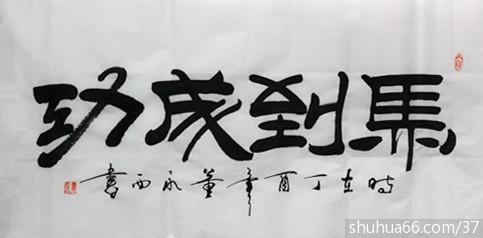 馬到成功
時在丁酉年董永西書
shuhua66.com/37